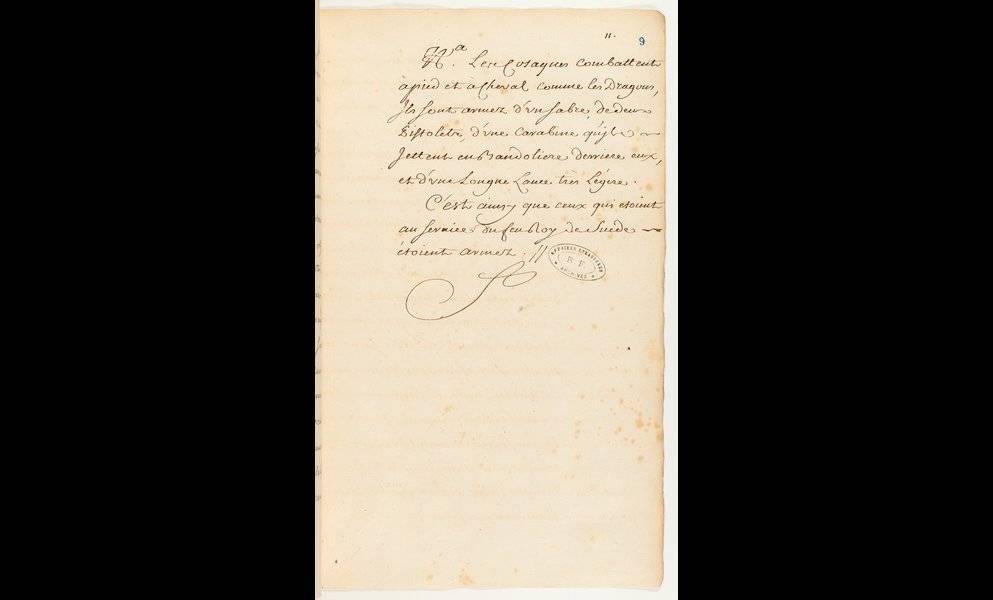 11.
9
N.ª Les Cosaques combattent
à pied et à Cheval comme les Dragons,
Ils sont armez d'vn sabre, de deux
Pistolets, d'vne Carabine qu'jls
Jettent en Bandoliere derriere eux,
et d'vne Longue Lance très Légere.
C'est ainsy que ceux qui etoient
au service du feu Roy de Suede
étoient armez. //
AFFAIRES ETRANGERES
R F
ARCHIVES